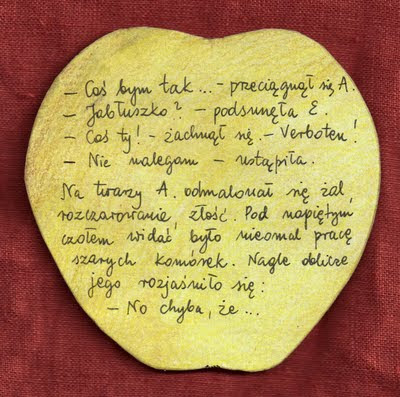 – Coś bym tak... – przeciągnął się A.
– Jabłuszko? – podsunęła E.
– Coś ty! – żachnął się. – Verboten!
– Nie nalegam – ustąpiła.
Na twarzy A. odmalował się żal,
rozczarowanie, złość. Pod napiętym
czołem widać było nieomal pracę
szarych komórek. Nagle oblicze
jego rozjaśniło się:
– No chyba, że...